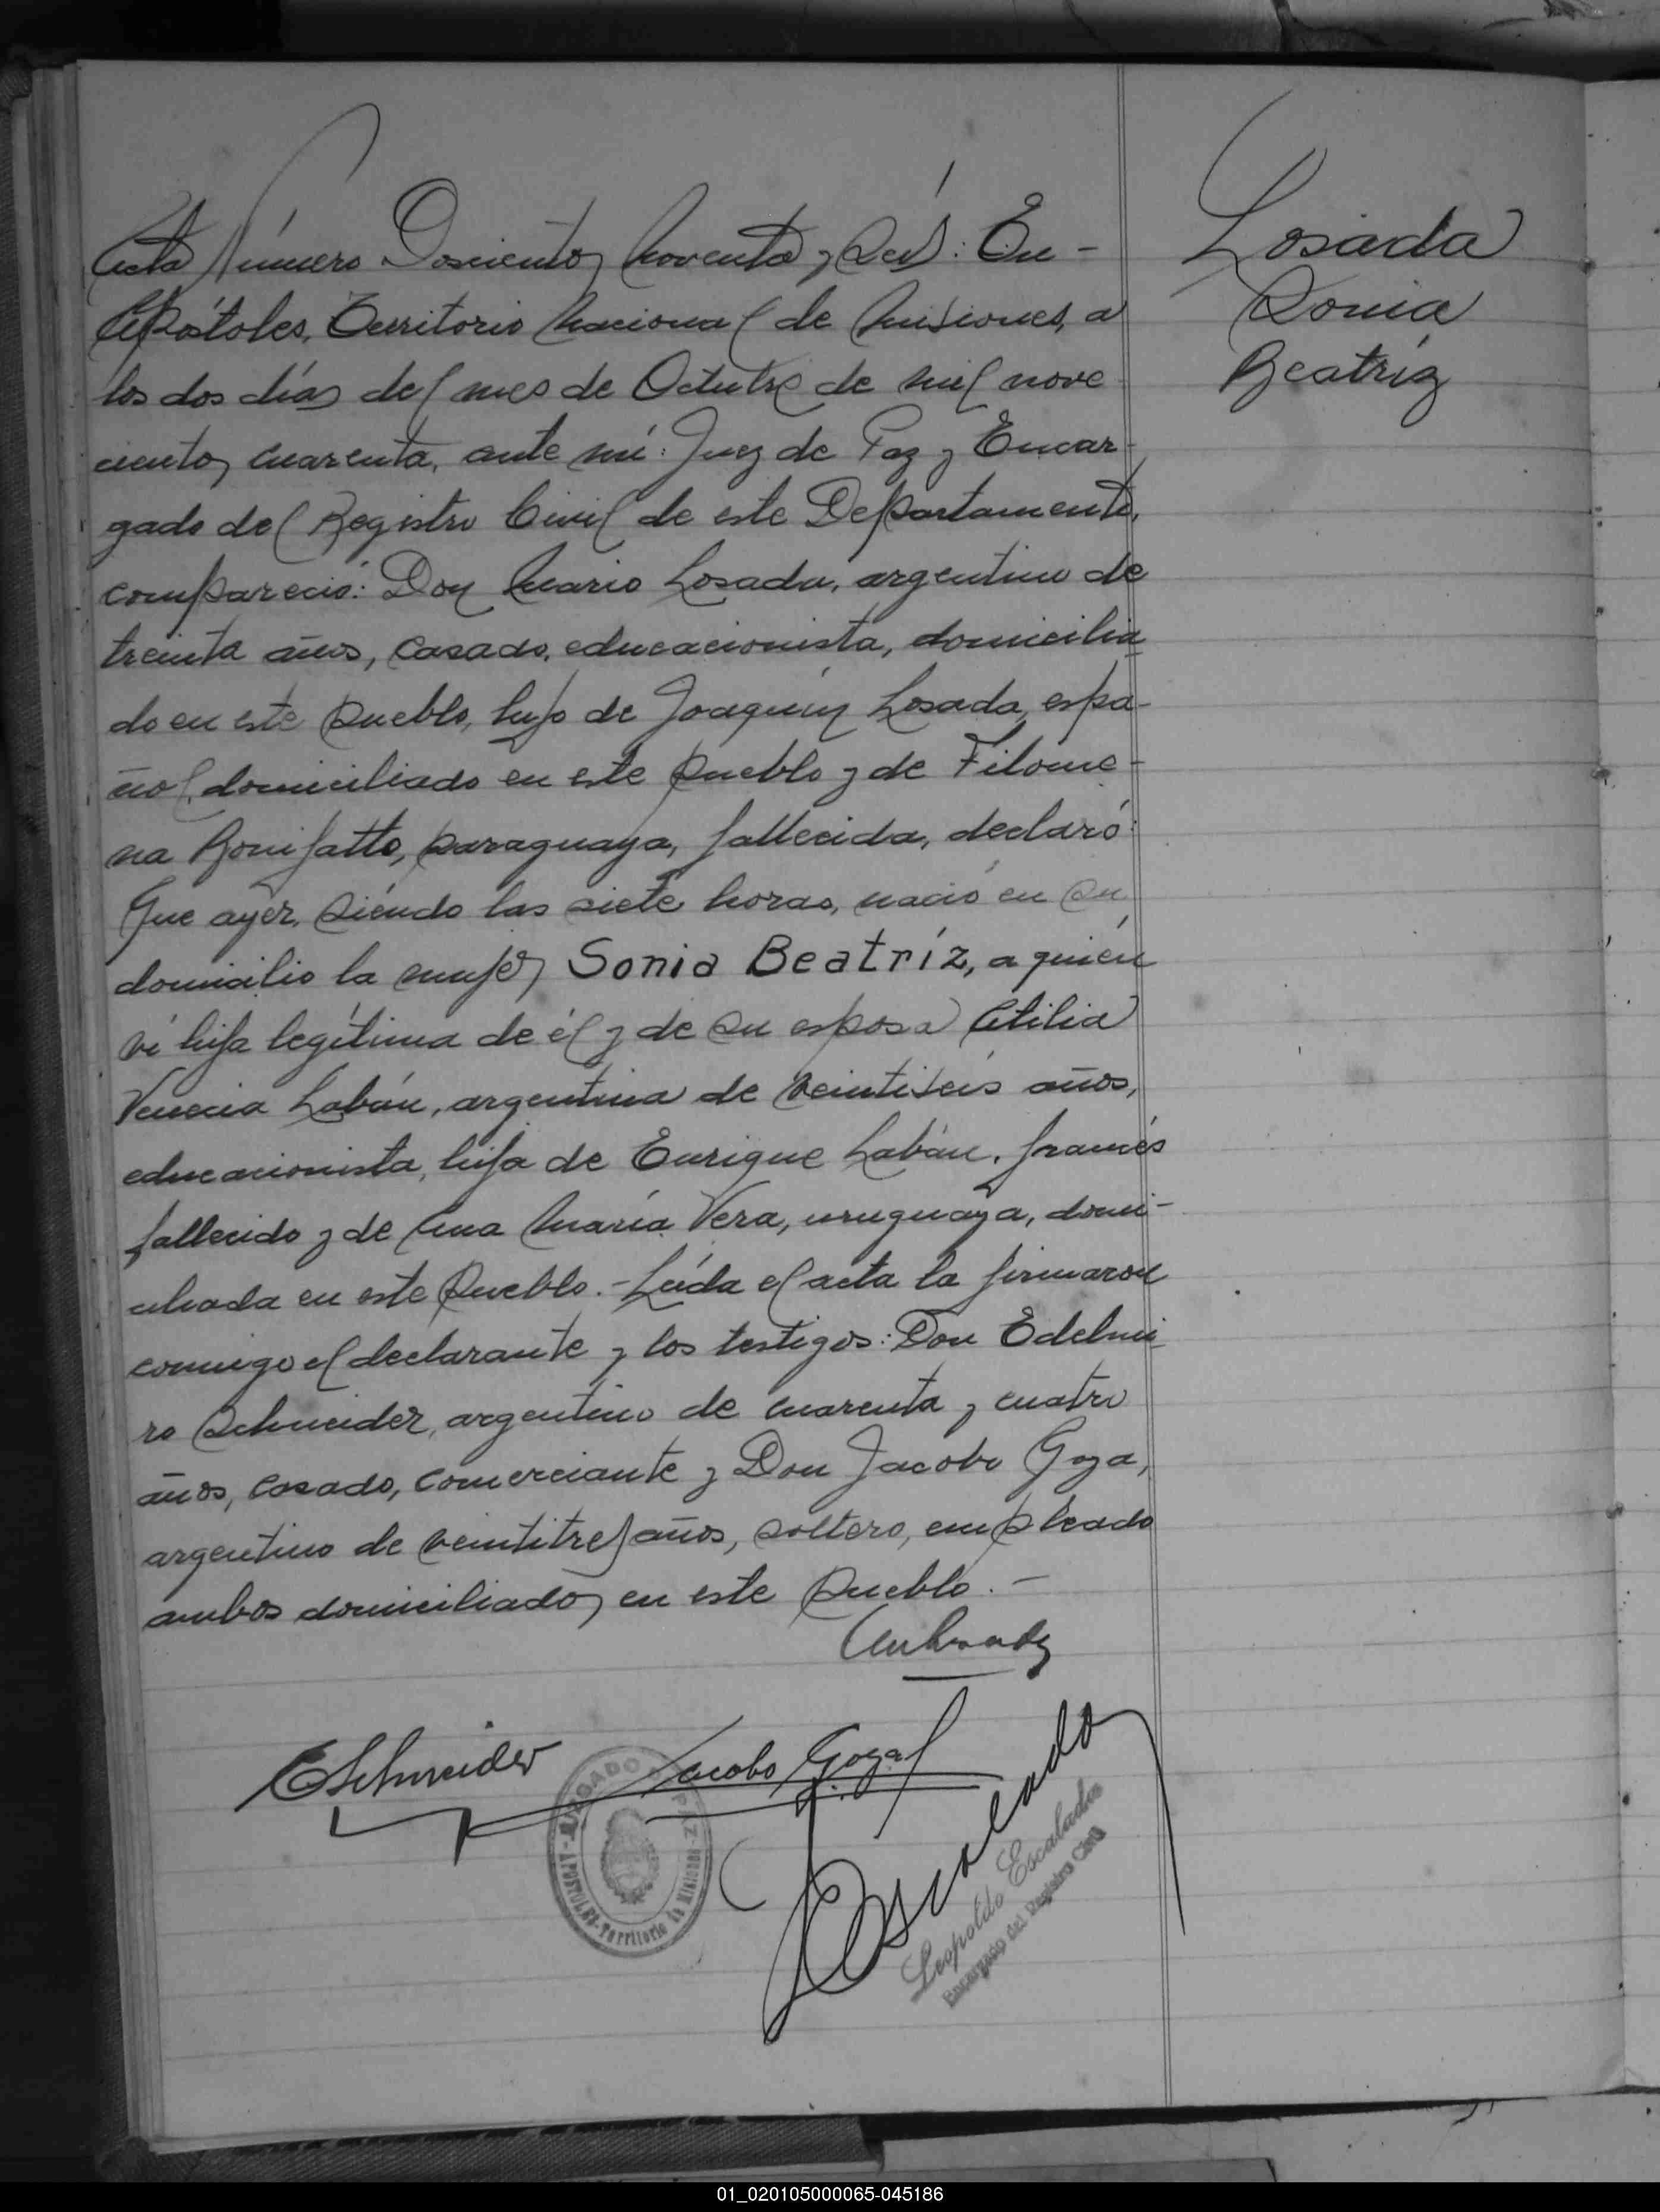 Acta Número Doscientos Noventa y Seis: En -
Apóstoles, Territorio Nacional de Misiones, a
los dos días del mes de Octubre de mil nove
cientos cuarenta, ante mí: Juez de Paz y Encar-
gado del Registro Civil de este Departamento,
compareció: Don Mario Losada, argentino de
treinta años, casado, educacionista, domicilia
do en este Pueblo, hijo de Joaquín Losada, espa-
ñol, domiciliado en este Pueblo y de Filome-
na Bonifatto, paraguaya, fallecida, declaró:
Que ayer, siéndo las siete horas, nació en su
domicilio la mujer Sonia Beatríz, a quién
ví hija legítima de él y de su esposa Otilia
Venecia Labán, argentina de veintiseis años,
educacionista, hija de Enrique Labán, francés
fallecido y de Ana María Vera, uruguaya, domi-
ciliada en este Pueblo. - Leída el acta la firmaron
conmigo el declarante y los testigos: Don Edelmi
ro Schneider, argentino de cuarenta y cuatro
años, casado, comerciante y Don Jacobo Goya,
argentino de veintitres años, soltero, empleado
ambos domiciliados en este Pueblo. -
Losada
Sonia
Beatríz
ESchneider
Jacobo Goya
Escalada
JUZGADO DE PAZ
- APOSTOLES - Territorio de Misiones -
Leopoldo Escalada
Encargado del Registro Civil
01_020105000065-045186